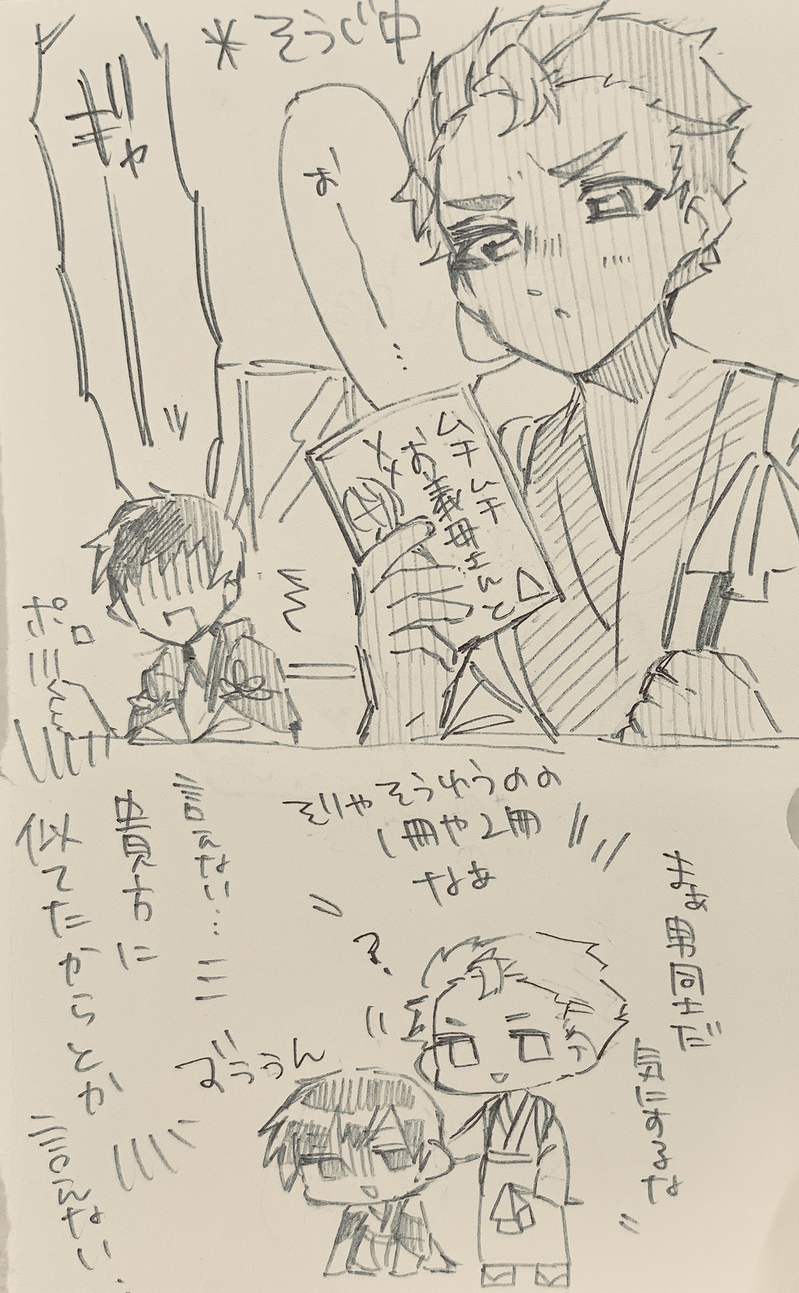 *そうじ中
お
……
ムチムチ
お義母さんと
ギャ
ッ
ポロ
まぁ男同士だ
気にするな
そりゃそうゆうのの
1冊や2冊
なぁ
?
ずううん
言えない…
貴方に
似てたからとか
言えない…